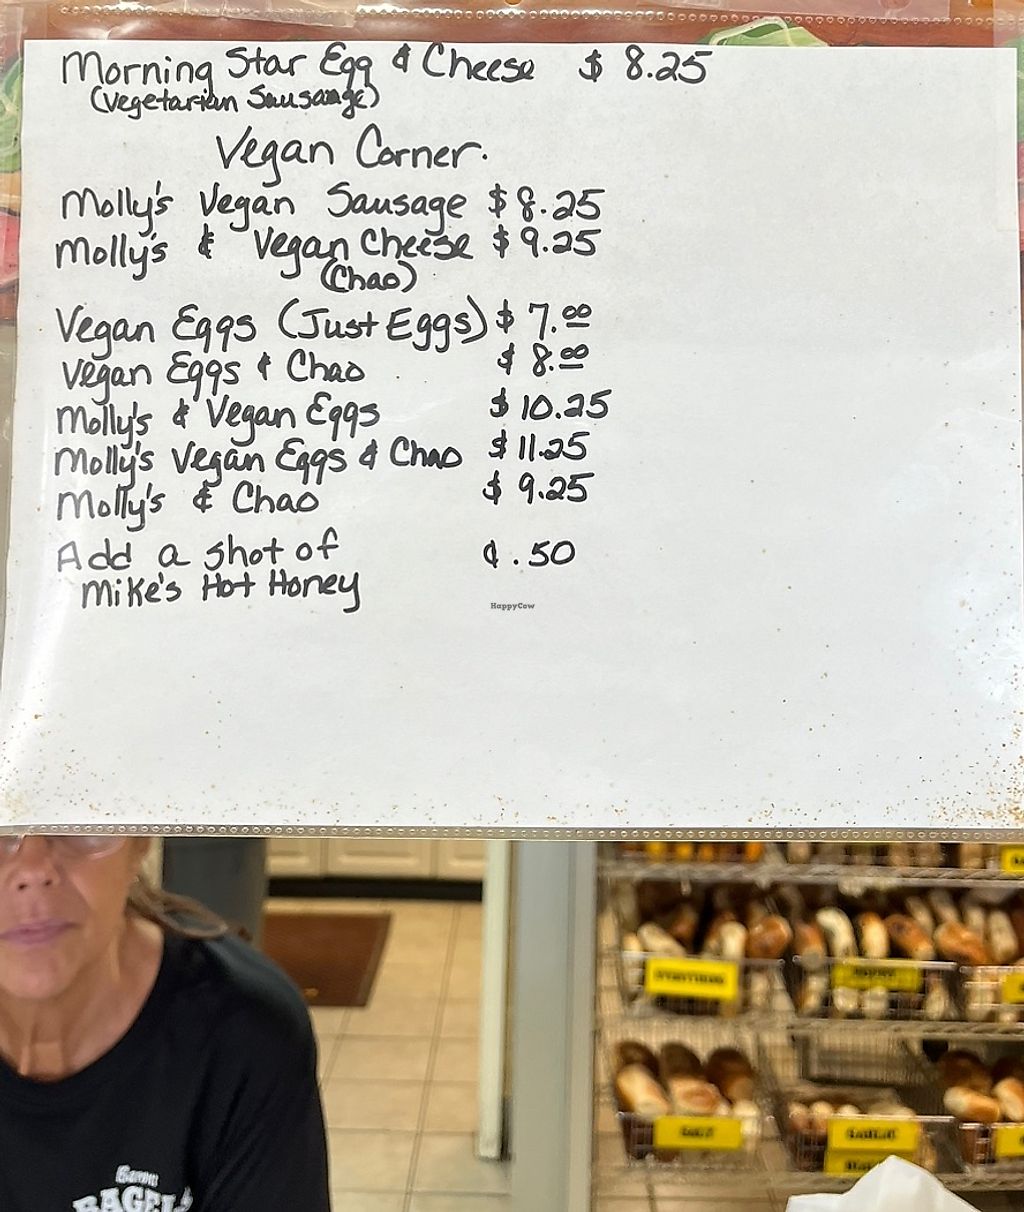 Morning Star Egg & Cheese $ 8.25
(Vegetarian Sausange)
Vegan Corner.
Molly's Vegan Sausage $ 8.25
Molly's & Vegan Cheese $ 9.25
(Chao)
Vegan Eggs (Just Eggs) $ 7.00
Vegan Eggs & Chao $ 8.00
Molly's & Vegan Eggs $ 10.25
Molly's Vegan Eggs & Chao $ 11.25
Molly's & Chao $ 9.25
Add a shot of ¢ .50
Mike's Hot Honey
HappyCow
EVERYTHING
SALT
GARLIC
BAGELS